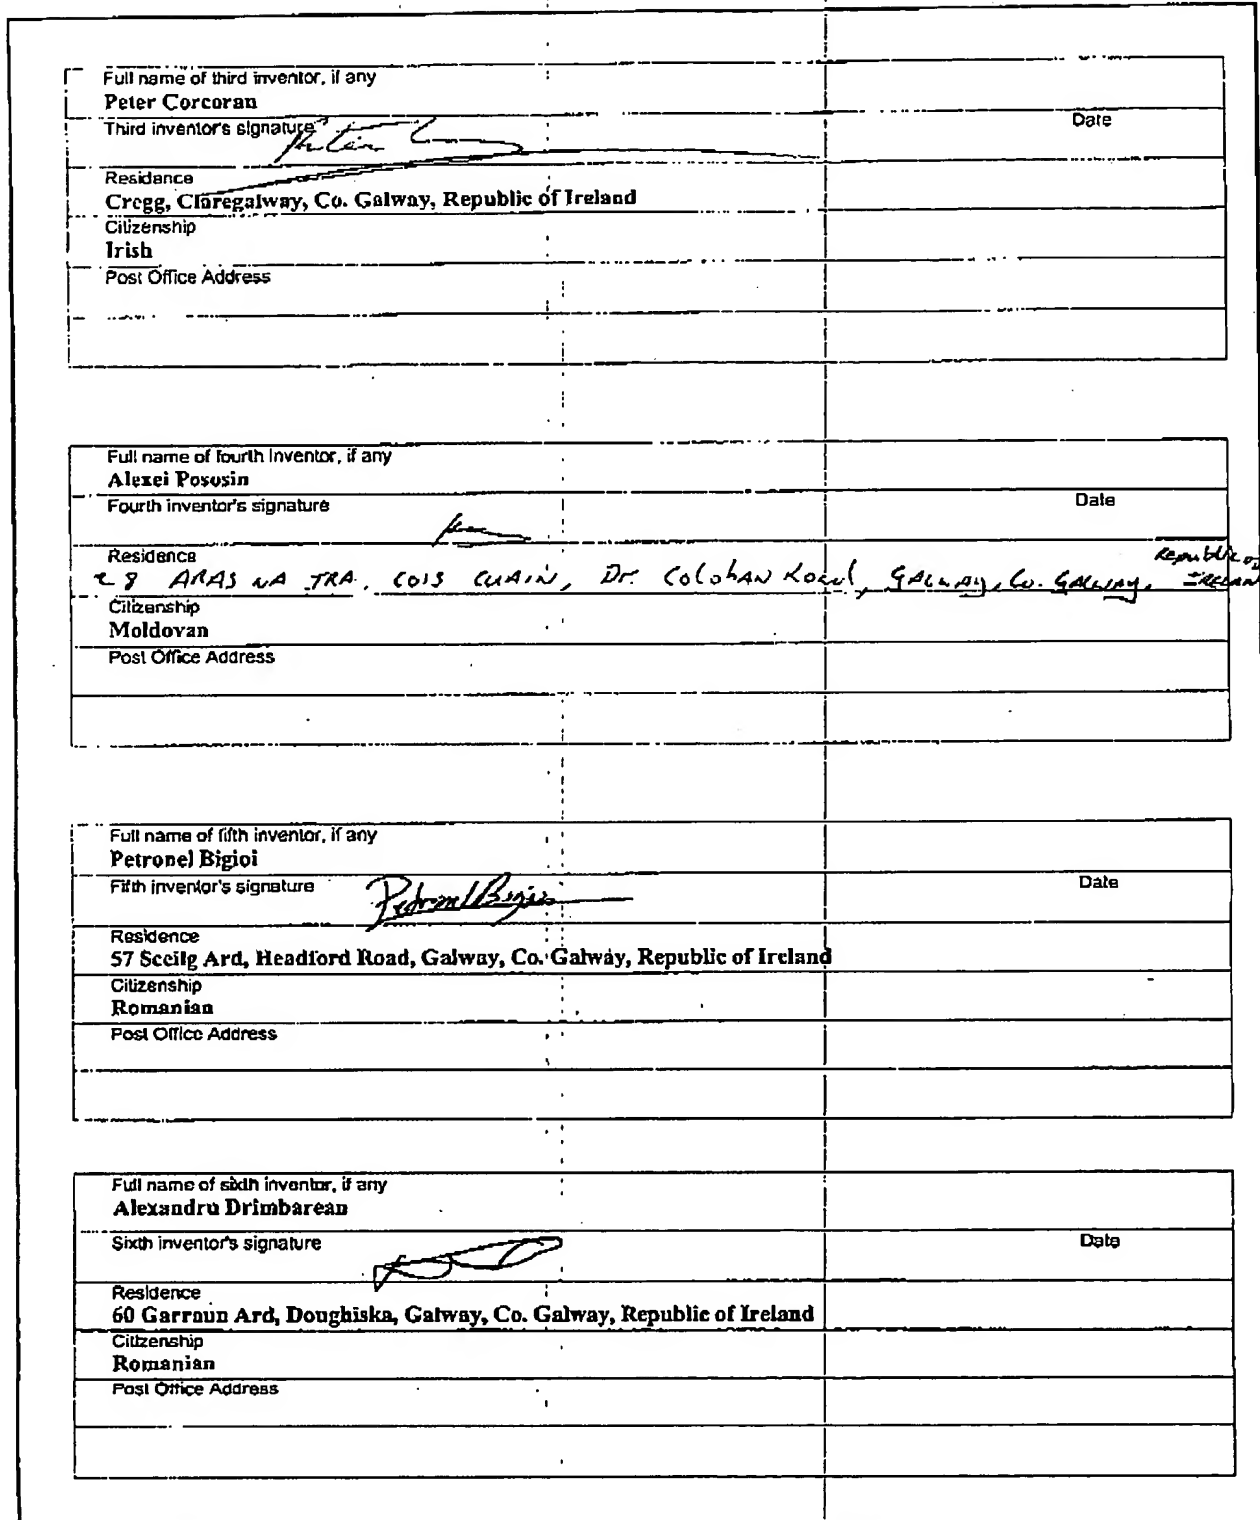 Full name of third inventor, if any
Peter Corcoran
Third inventor's signature Date
Residence
Cregg, Claregalway, Co. Galway, Republic of Ireland
Citizenship
Irish
Post Office Address
Full name of fourth inventor, if any
Alexei Pososin
Fourth inventor's signature Date
Residence
8 ARAS NA TRA. COIS CUAIN, Dr. Colohan GALWAY, Co. GALWAY, Republic of IRELAN
Citizenship
Moldovan
Post Office Address
Full name of fifth inventor, if any
Petronel Bigioi
Fifth inventor's signature Petronel Bigioi Date
Residence
57 Sceilg Ard, Headford Road, Galway, Co. Galway, Republic of Ireland
Citizenship
Romanian
Post Office Address
Full name of sixth inventor, if any
Alexandru Drimbarean
Sixth inventor's signature Date
Residence
60 Garraun Ard, Doughiska, Galway, Co. Galway, Republic of Ireland
Citizenship
Romanian
Post Office Address